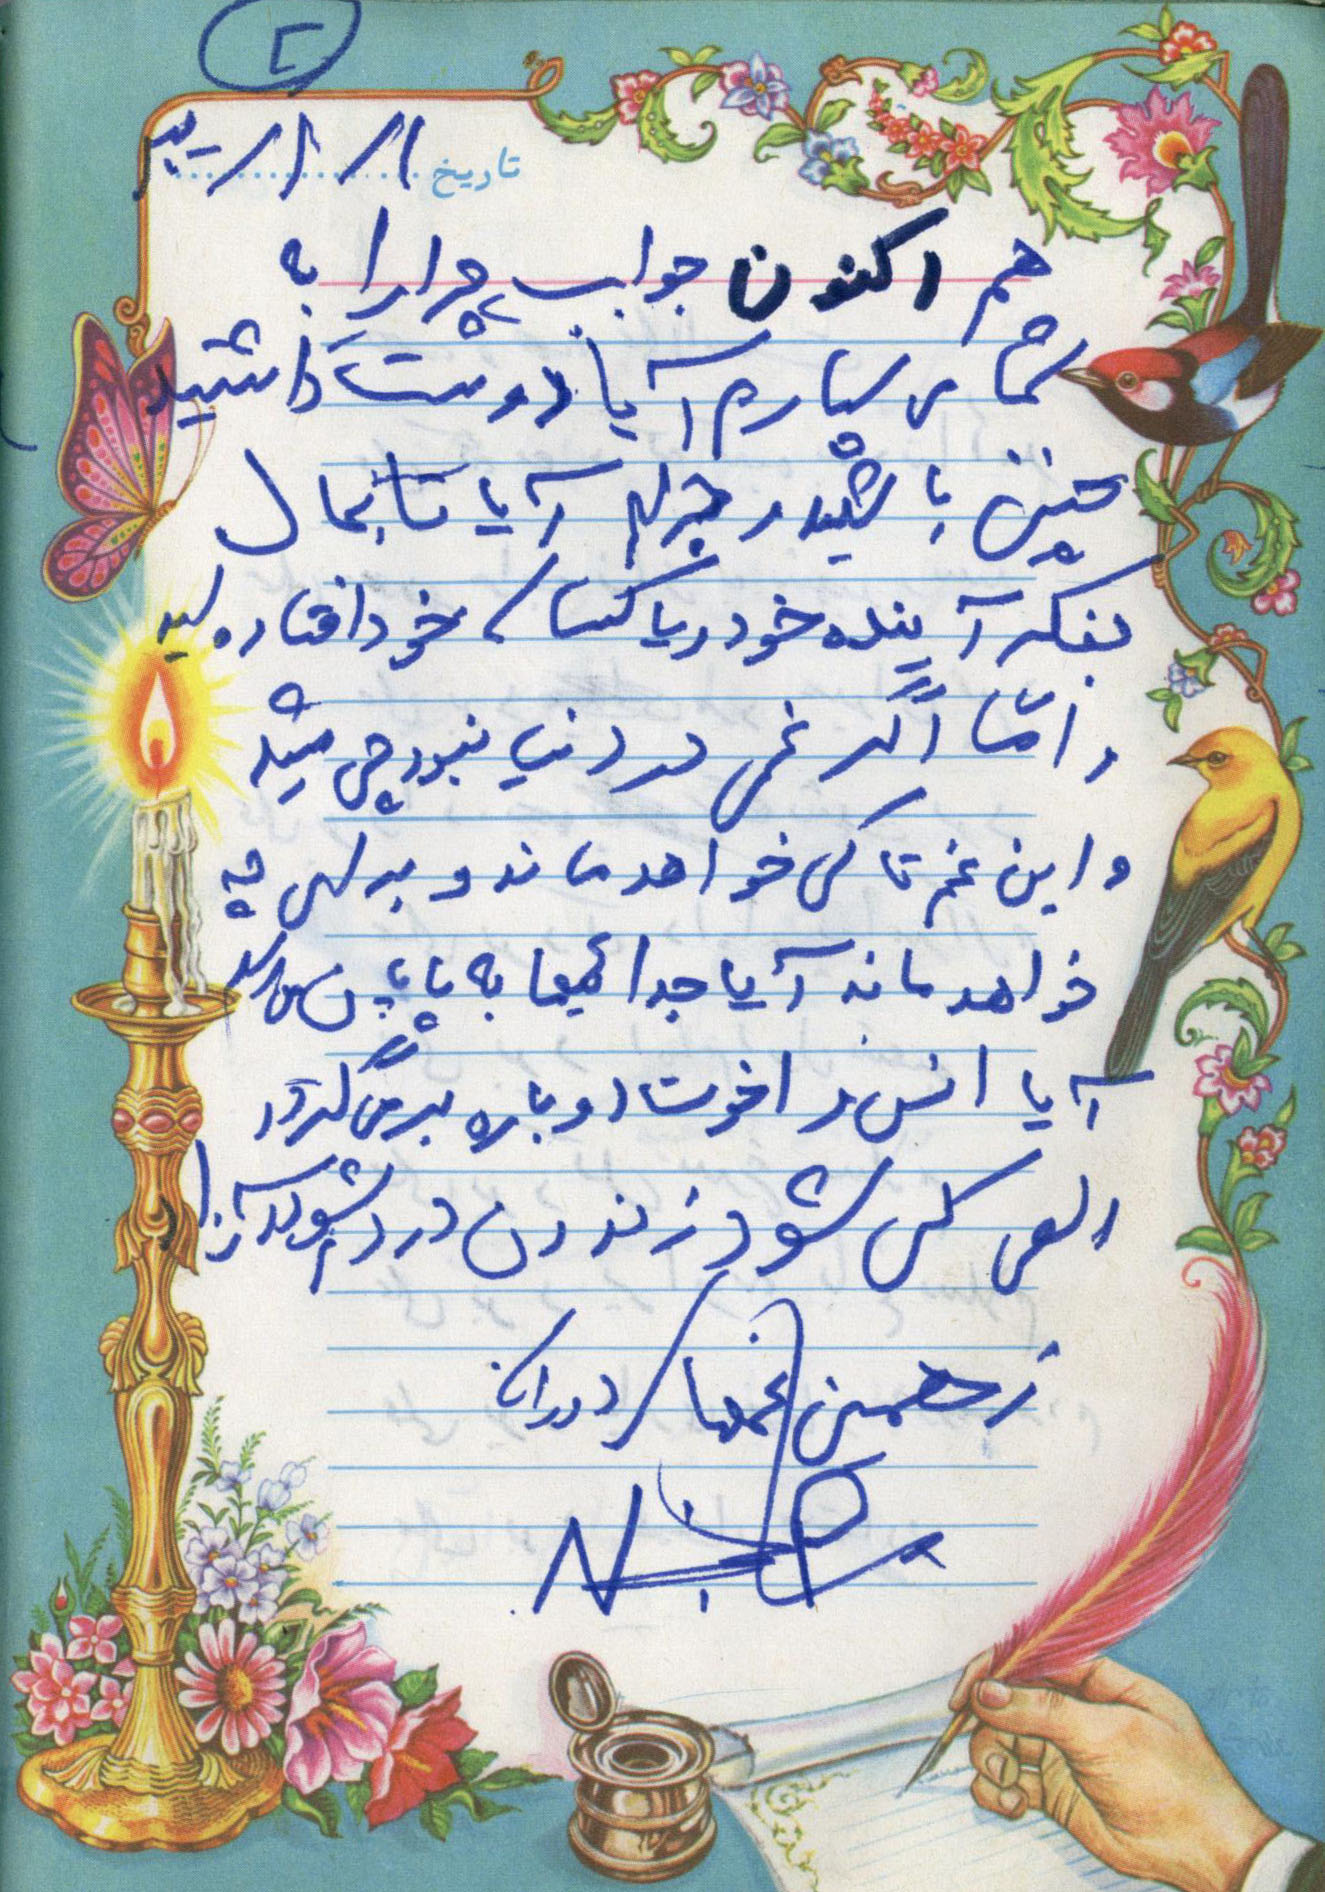 ۲
تاریخ
هم اکنون جواب چرا را به
شما می سپارم آیا دوست داشتید
چنین باشید و چرا؟ آیا تا بحال
بفکر آینده خود و یا کسان خود افتاده اید
و اما اگر غمی در دنیا نبود چی میشد
و این غم تا کی خواهد ماند و برای چه
خواهد ماند آیا جدائیها به پایان می رسد
آیا انس و اخوت دوباره بر می گردد
الهی کی شود زندون در دشوید آزاد
ز همین غمهای دوران